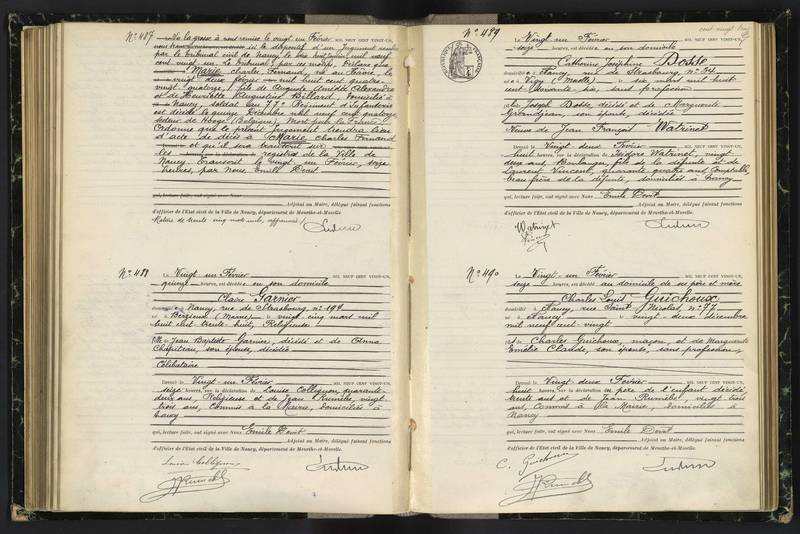 N° 487
de la grosse à nous remise le vingt un Février MIL NEUF CENT VINGT-UN,
par le tribunal civil de Nancy le dix huit
cent vingt un. Le tribunal, par ces motifs, déclare que
Marie, Charles, Fernand, né au Havre, le
vingt deux mil huit cent quatre
vingt quatorze, fils de Auguste Amédée Alexandre
et de Henriette Augustine Billard, domicilié à
Nancy, soldat au 77e Régiment d'Infanterie
est décédé le quinze Décembre mil neuf cent quatorze
(Belgique), Mort pour la France
Ordonne que le présent jugement tiendra lieu
d'acte de décès à Marie, Charles Fernand
et qu'il sera transcrit sur
les registres de la Ville de
Nancy. Transcrit le vingt un Février, seize
heures, par Nous Emile Devit
qui, lecture faite, ont signé avec Nous
Adjoint au Maire, délégué faisant fonctions
d'officier de l'Etat civil de la Ville de Nancy, département de Meurthe-et-Moselle.
N° 488
Le Vingt un Février MIL NEUF CENT VINGT-UN,
quinze heures, est décédée en son domicile
Claire Garnier
Nancy, rue de Strasbourg n° 194
(Marne), le vingt cinq mars mil
huit cent trente huit, Religieuse
fille de Jean Baptiste Garnier, décédé et de Anna
son épouse, décédée
Célibataire
Dressé le Vingt un Février MIL NEUF CENT VINGT-UN,
seize heures, sur la déclaration de Louise Collignon, quarante
deux ans, Religieuse et de Jean vingt
trois ans, Commis à la Mairie, domiciliés à
Nancy
qui, lecture faite, ont signé avec Nous Emile Devit
Adjoint au Maire, délégué faisant fonctions
d'officier de l'Etat civil de la Ville de Nancy, département de Meurthe-et-Moselle.
Louise Collignon
N° 489
Le Vingt un Février MIL NEUF CENT VINGT-UN,
seize heures, est décédée en son domicile
Catherine Joséphine Bosse
Nancy, rue de Strasbourg, n° 94
née à Vigy (Moselle) le six mars mil huit
cent soixante six, sans profession
fille Joseph Bosse, décédé et de Marguerite
Grandjean, son épouse, décédée
Veuve de Jean François Watrinet
Dressé le Vingt deux Février MIL NEUF CENT VINGT-UN,
huit heures, sur la déclaration de Isidore Watrinet, vingt
deux ans, Boulanger, fils de la défunte et de
Laurent Vincent, quarante quatre ans, Comptable,
beau frère de la défunte, domiciliés à Nancy
qui, lecture faite, ont signé avec Nous Emile Devit
Adjoint au Maire, délégué faisant fonctions
d'officier de l'Etat civil de la Ville de Nancy, département de Meurthe-et-Moselle.
Watrinet
N° 490
Le Vingt un Février MIL NEUF CENT VINGT-UN,
seize heures, est décédé au domicile de ses père et mère
Charles Louis Guichoux
Nancy, rue Saint Nicolas, n° 77
né à Nancy le vingt deux Décembre
mil neuf cent vingt
fils de Charles Guichoux, maçon, et de Marguerite
Emélie Claude, son épouse, sans profession
Dressé le Vingt deux Février MIL NEUF CENT VINGT-UN,
huit heures, sur la déclaration du père de l'enfant décédé,
trente ans et de Jean vingt trois
ans, Commis à la Mairie, domiciliés à
Nancy
qui, lecture faite, ont signé avec Nous Emile Devit
Adjoint au Maire, délégué faisant fonctions
d'officier de l'Etat civil de la Ville de Nancy, département de Meurthe-et-Moselle.
C. Guichoux